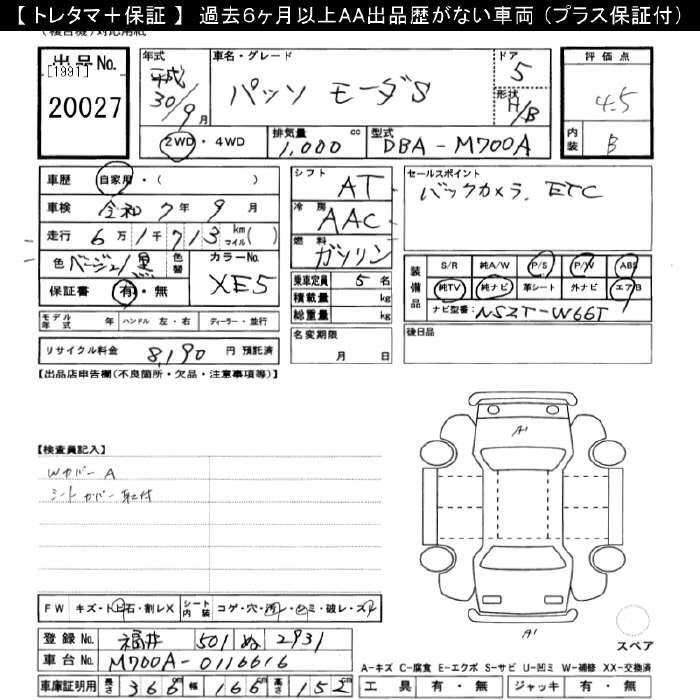 【 トレタマ＋保証 】 過去６ヶ月以上ＡＡ出品歴がない車両（プラス保証付）
出品No.
[1991]
20027
年式 平成 30/9月
車名・グレード パッソ モーダS
ドア 5
形状 H/B
2WD・4WD
排気量 1,000 cc
型式 DBA-M700A
評価点 4.5
内装 B
車歴 自家用・( )
車検 令和 7年 9月
走行 6万1千713 km マイル( )
色 ベージュ/黒 色替
カラーNo. XE5
保証書 有・無
シフト AT
冷房 AAC
燃料 ガソリン
乗車定員 5名
積載量 kg
総重量 kg
セールスポイント
バックカメラ. ETC
装備品
S/R 純A/W P/S P/W ABS
純TV 純ナビ 革シート 外ナビ エアB
ナビ型番: NSZT-W66T
モデル年式 年 ハンドル 左・右 ディーラー・並行
名変期限 月 日
後日品
リサイクル料金 8,190 円 預託済
【出品店申告欄(不良箇所・欠品・注意事項等)】
【検査員記入】
Wカバー A
シートカバー取付
A1
A1
スペア
FW キズ・トビ石・割レX
シート内装 コゲ・穴・汚レ・シミ・破レ・スレ
登録No. 福井 501 ぬ 2931
車台No. M700A-0116616
車庫証明用 長さ 366cm 幅 166cm 高さ 152cm
A-キズ C-腐食 E-エクボ S-サビ U-凹ミ W-補修 XX-交換済
工具 有・無 ジャッキ 有・無